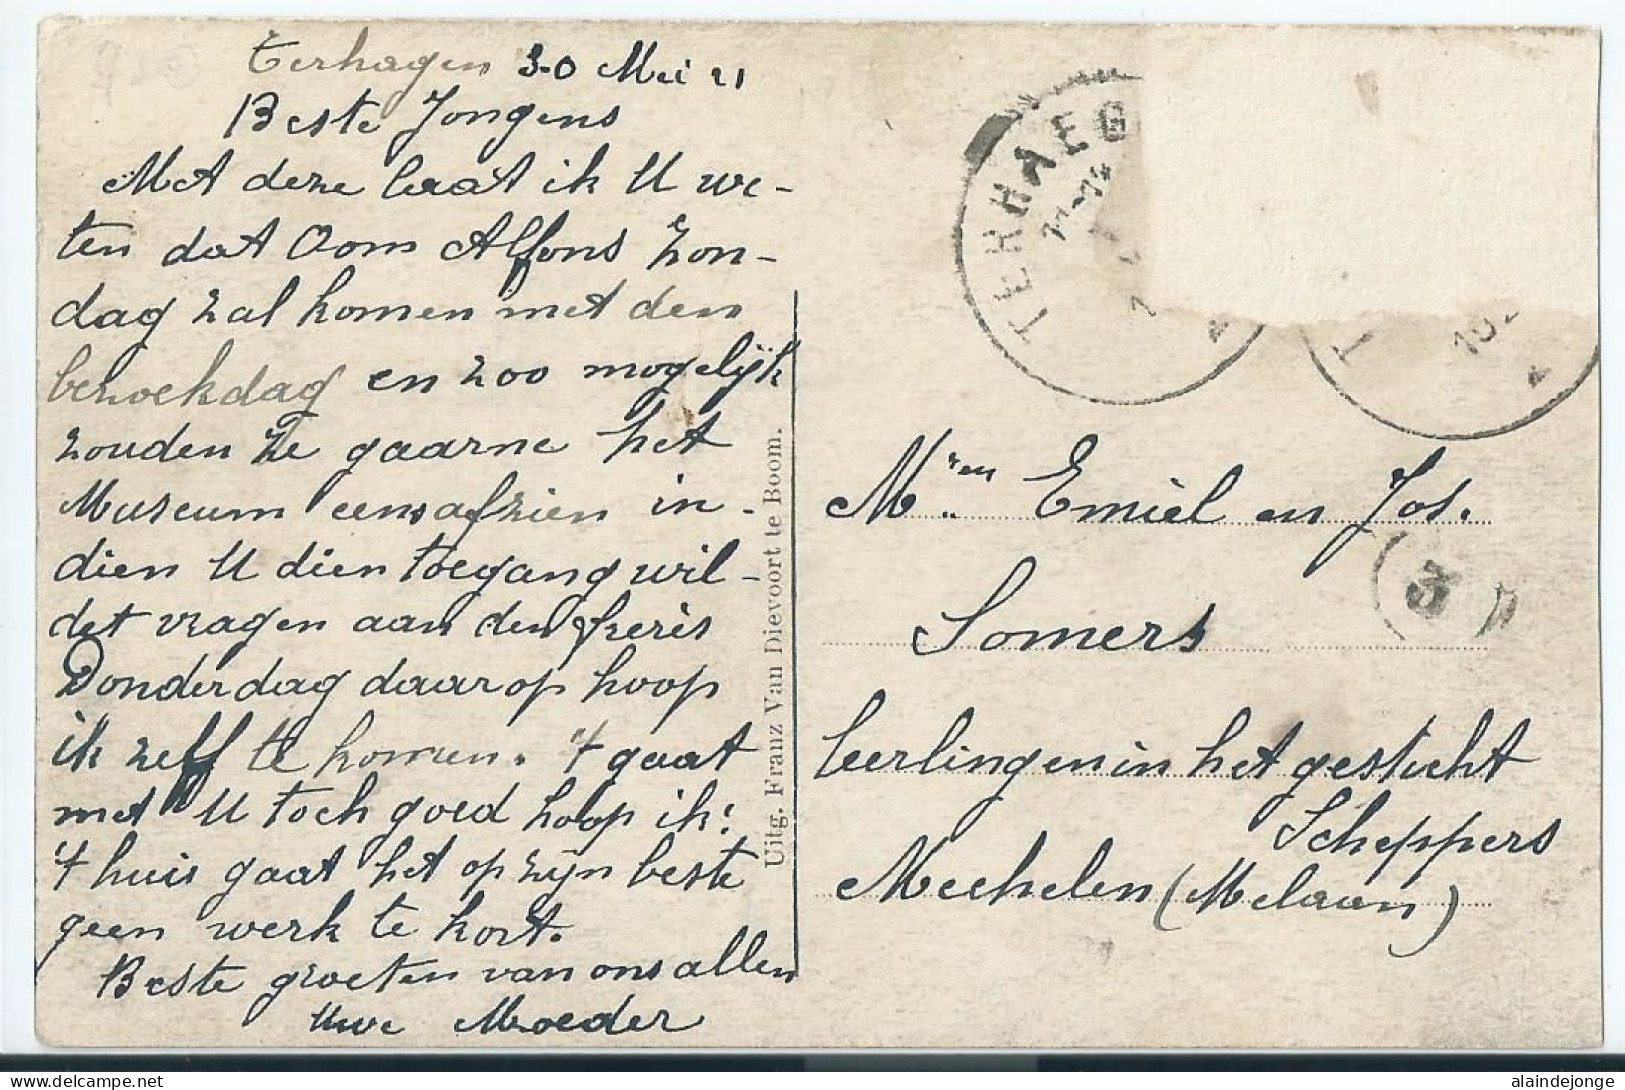 Terhagen 30 Mei 21
Beste Jongens
Met deze laat ik U we-
ten dat Oom Alfons zon-
dag zal komen met den
bezoekdag en zoo mogelijk
zouden ze gaarne het
Museum eens afzien in-
dien U dien toegang wil-
det vragen aan den frerès
Donderdag daarop hoop
ik zelf te komen. 't gaat
met U toch goed hoop ik!
't huis gaat het op zijn beste
geen werk te kort.
Beste groeten van ons allen
Uwe Moeder
Uitg. Franz Van Dievoort te Boom.
TERHAEG
11-12
T
192
Mren Emiel en Jos.
3
Somers
leerlingen in het gesticht
Scheppers
Mechelen (Melaan)
alaindejonge